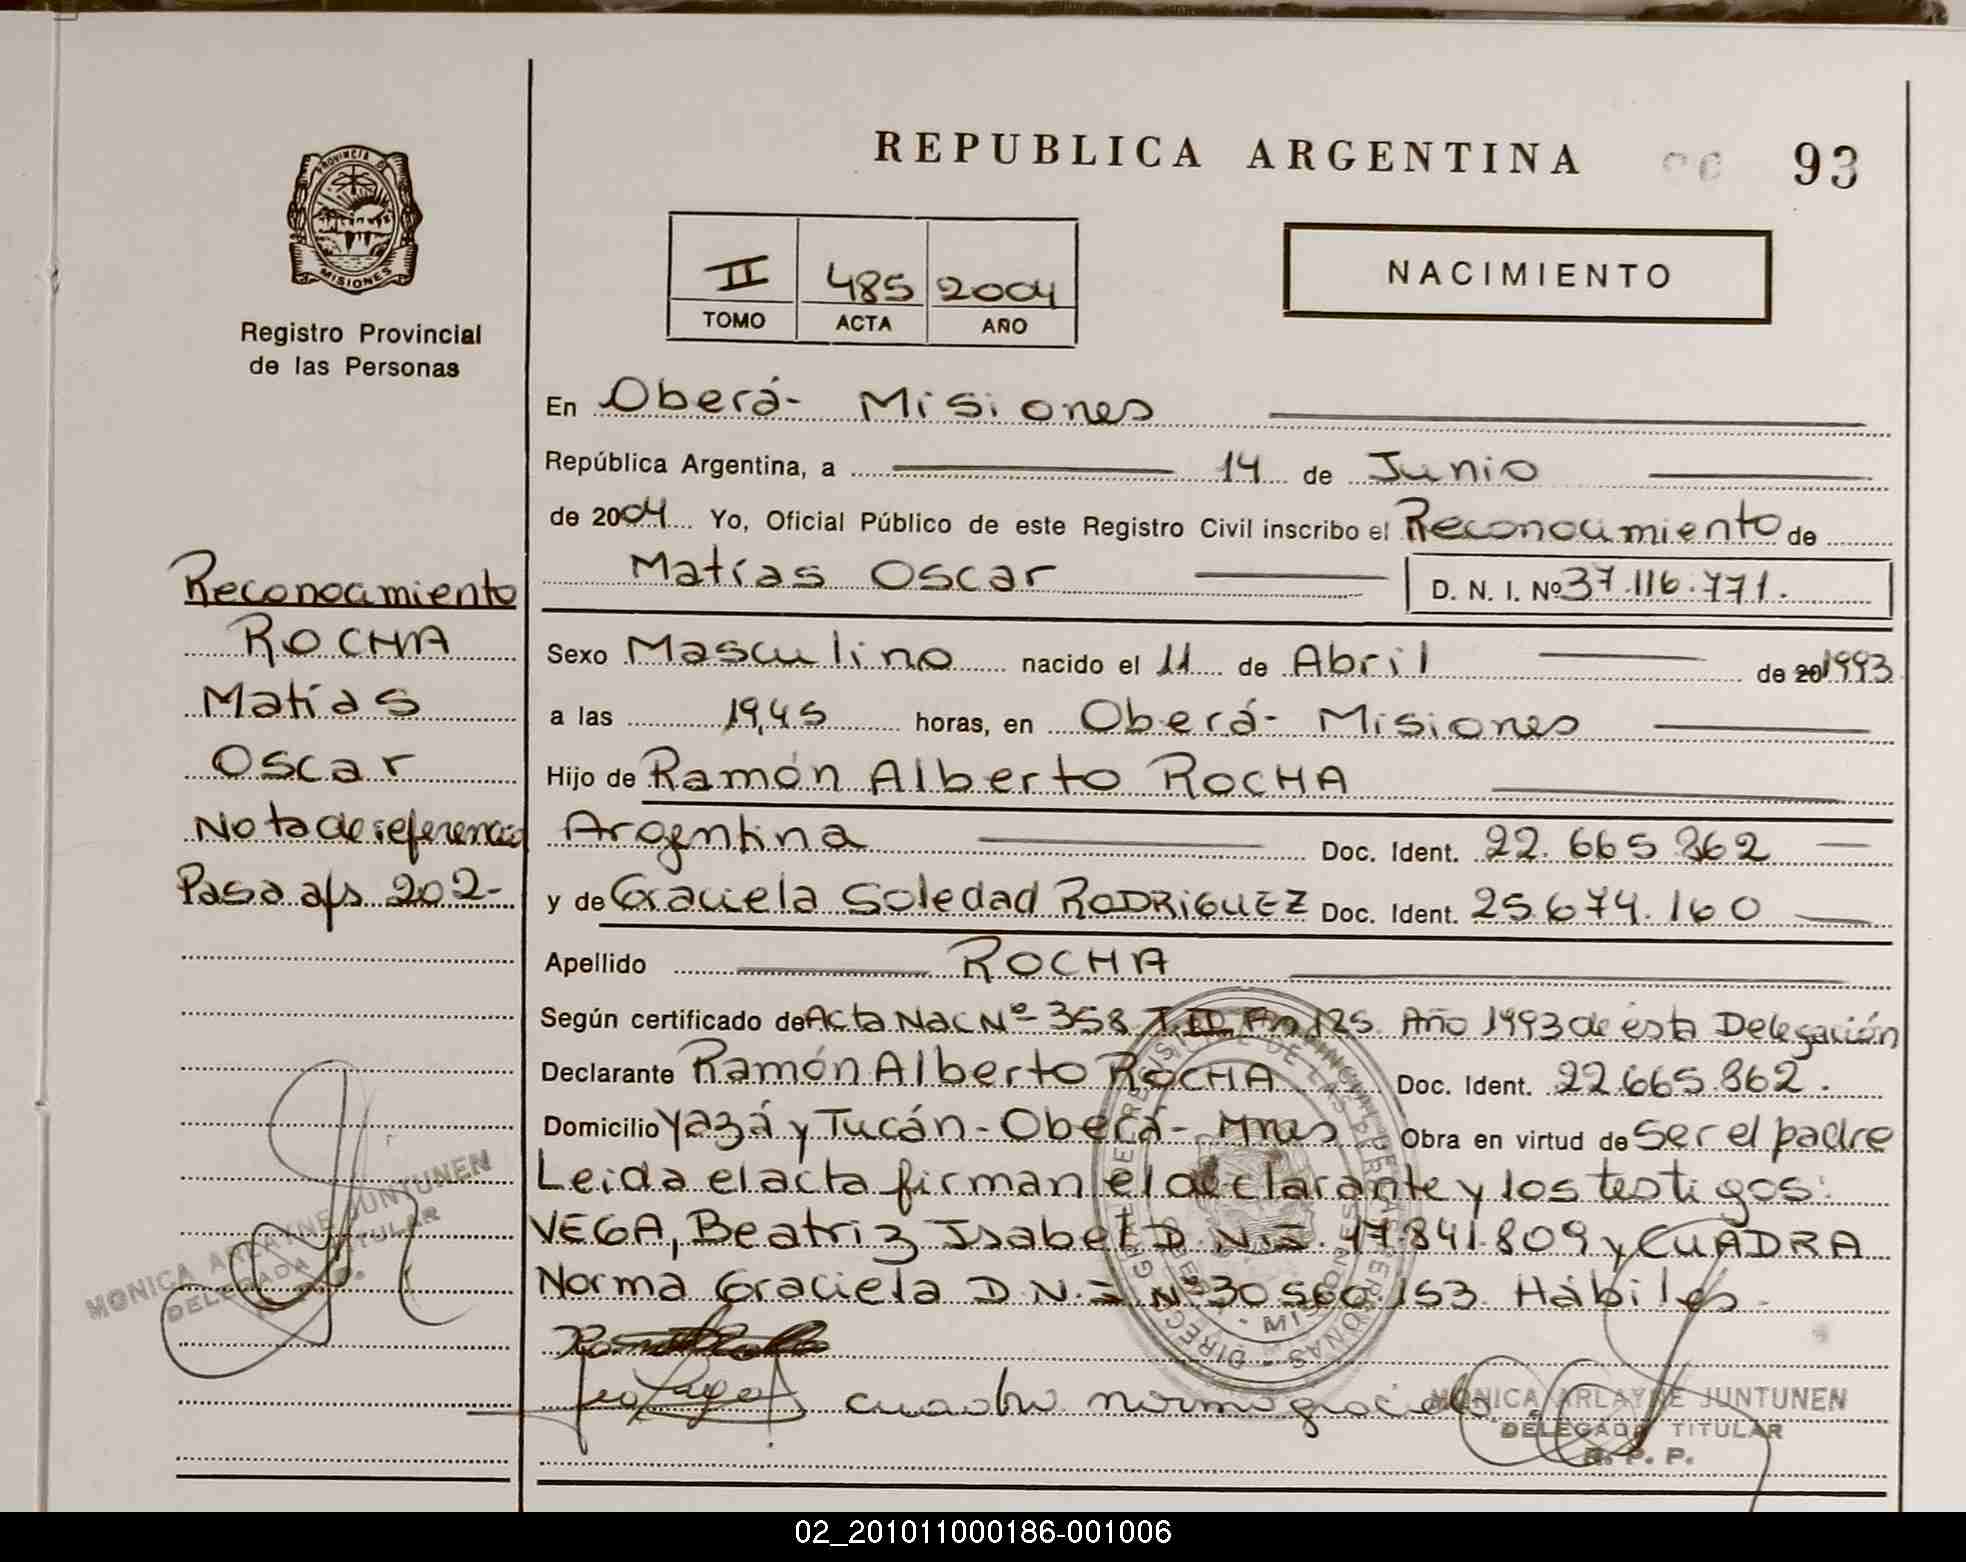 REPUBLICA ARGENTINA 93
PROVINCIA DE MISIONES
Registro Provincial
de las Personas
II 485 2004
TOMO ACTA AÑO
NACIMIENTO
En Oberá- Misiones
República Argentina, a 14 de Junio
de 2004 Yo, Oficial Público de este Registro Civil inscribo el Reconocimiento de
Matías Oscar D. N. I. Nº 37.116.771.
Sexo Masculino nacido el 11 de Abril de 20 1993
a las 19,45 horas, en Oberá- Misiones
Hijo de Ramón Alberto ROCHA
Argentina Doc. Ident. 22.665.862
y de Graciela Soledad RODRIGUEZ Doc. Ident. 25.674.160
Apellido ROCHA
Según certificado de Acta Nac Nº 358 T.II Año 1993 de ésta Delegación
Declarante Ramón Alberto ROCHA Doc. Ident. 22.665.862.
Domicilio Yazá y Tucán - Oberá- Mnes Obra en virtud de ser el padre
Leida el acta firman el declarante y los testigos:
VEGA, Beatriz Isabel D.N.I. 17.841.809 y CUADRA
Norma Graciela D.N.I Nº 30.560.153. Hábiles.
cuadra norma graciela
MONICA ARLAYNE JUNTUNEN
DELEGADA TITULAR
R. P. P.
Reconocimiento
ROCHA
Matías
Oscar
Nota de referencia
Pasa a fs 202-
MONICA ARLAYNE JUNTUNEN
DELEGADA TITULAR
02_201011000186-001006